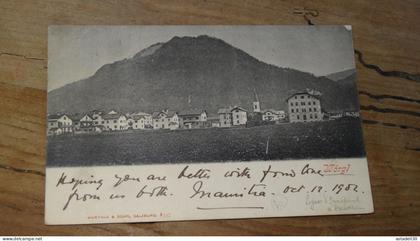 Wörgl
Hoping you are better with fond love
from us both. Mamitia Oct 12. 1902.
WÜRTHLE & SOHN, SALZBURG.
www.delcampe.net
adam230